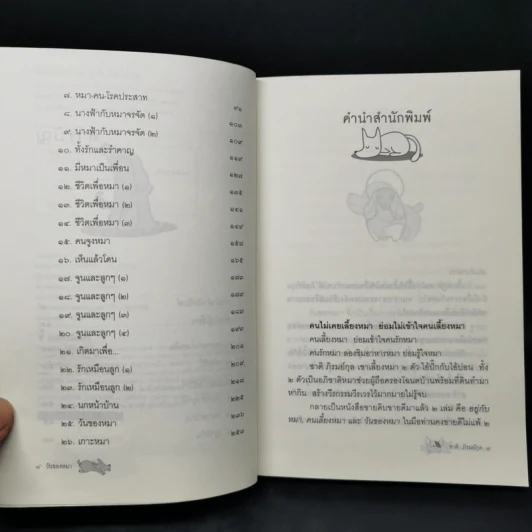 ๗. หมา-คน-โรคประสาท ๙๖
๘. นางฟ้ากับหมาจรจัด (๑) ๑๐๑
๙. นางฟ้ากับหมาจรจัด (๒) ๑๐๙
๑๐. ทั้งรักและรำคาญ ๑๑๙
๑๑. มีหมาเป็นเพื่อน ๑๒๗
๑๒. ชีวิตเพื่อหมา (๑) ๑๓๕
๑๓. ชีวิตเพื่อหมา (๒) ๑๔๑
๑๔. ชีวิตเพื่อหมา (๓) ๑๔๙
๑๕. คนจูงหมา ๑๕๘
๑๖. เห็นแล้วโดน ๑๖๕
๑๗. จูนและลูกๆ (๑)
๑๘. จูนและลูกๆ (๒)
๑๙. จูนและลูกๆ (๓)
๒๐. จูนและลูกๆ (๔)
๒๑. เกิดมาเพื่อ...
๒๒. รักเหมือนลูก (๑)
๒๓. รักเหมือนลูก (๒)
๒๔. นกหน้าบ้าน
๒๕. วันของหมา
๒๖. เกาะหมา
๘ วันของหมา
คำนำสำนักพิมพ์
คนไม่เคยเลี้ยงหมา ย่อมไม่เข้าใจคนเลี้ยงหมา
คนเลี้ยงหมา ย่อมเข้าใจคนรักหมา
คนรักหมา ลองชิมอาหารหมา ย่อมรู้ใจหมา
ชาติ ภิรมย์กุล เขาเลี้ยงหมา ๒ ตัว ไอ้ปิ๊กกับไอ้ปอน ทั้ง
๒ ตัวเป็นอภิชาติหมาช่วยผู้ถือครองโฉนดบ้านพร้อมที่ดินทำมา
หากิน สร้างวีรกรรมวีรเวรไว้มากมายไม่รู้จบ
กลายเป็นหนังสือขายดิบขายดีมาแล้ว ๒ เล่ม คือ อยู่กับ
หมา, คนเลี้ยงหมา และ วันของหมา ในมือท่านคงขายดีไม่แพ้ ๒
ชาติ ภิรมย์กุล ๙